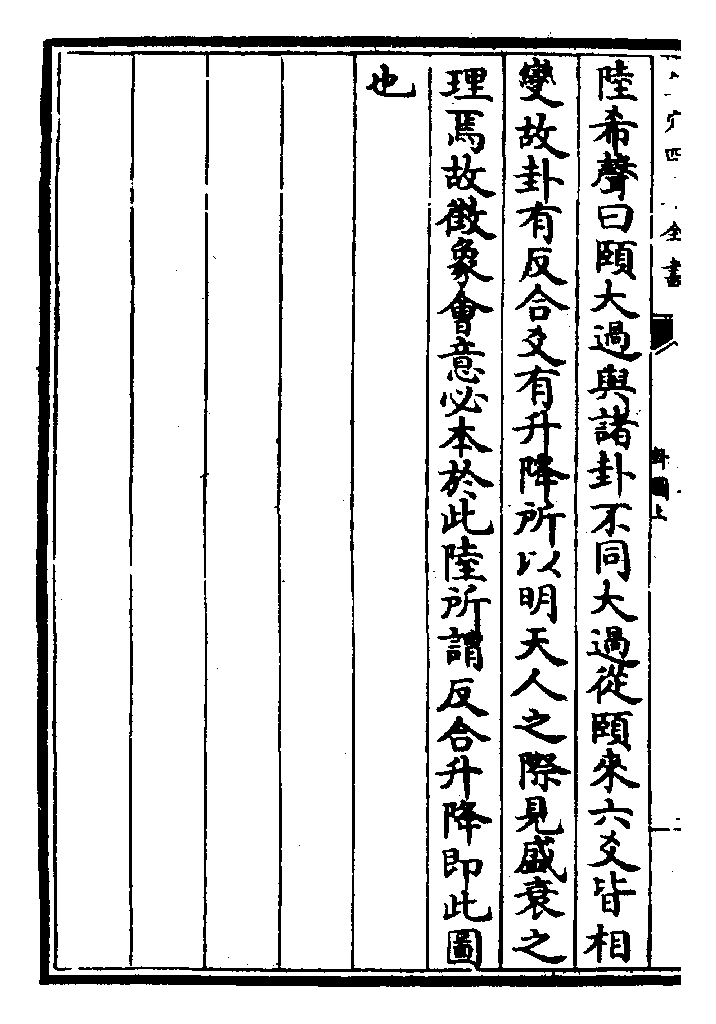 陸希聲曰頤大過與諸卦不同大過從頤來六爻皆相
變故卦有反合爻有升降所以明天人之際見盛衰之
理焉故徵象會意必本於此陸所謂反合升降即此圖
也